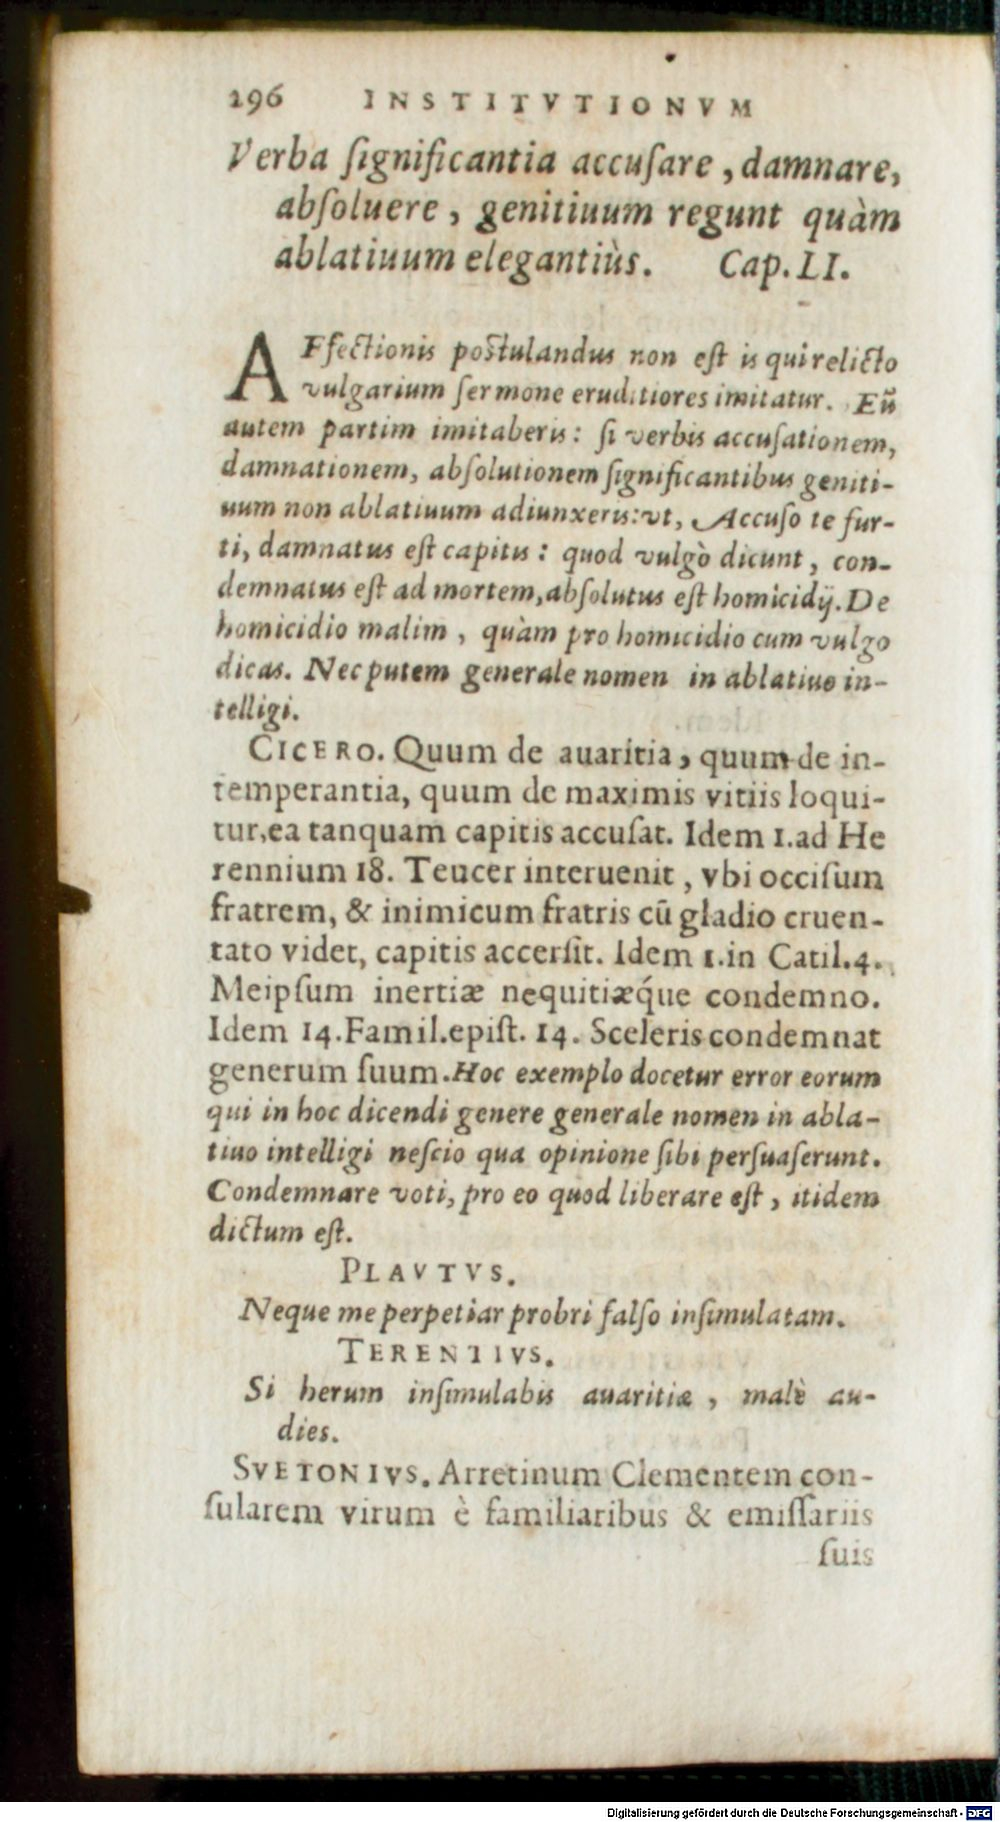 196 INSTITVTIONVM
Verba ſignificantia accuſare, damnare,
abſoluere, genitiuum regunt quàm
ablatiuum elegantiùs. Cap. LI.
AFfectionis poſtulandus non eſt is qui relicto
vulgarium ſermone eruditiores imitatur. Eũ
autem partim imitaberis: ſi verbis accuſationem,
damnationem, abſolutionem ſignificantibus geniti-
uum non ablatiuum adiunxeris: vt, Accuſo te fur-
ti, damnatus eſt capitis: quod vulgò dicunt, con-
demnatus eſt ad mortem, abſolutus eſt homicidij. De
homicidio malim, quàm pro homicidio cum vulgo
dicas. Nec putem generale nomen in ablatiuo in-
telligi.
CICERO. Quum de auaritia, quum de in-
temperantia, quum de maximis vitiis loqui-
tur, ea tanquam capitis accuſat. Idem 1. ad He
rennium 18. Teucer interuenit, vbi occiſum
fratrem, & inimicum fratris cũ gladio cruen-
tato videt, capitis accerſit. Idem 1. in Catil. 4.
Meipſum inertiæ nequitiæq́ue condemno.
Idem 14. Famil. epiſt. 14. Sceleris condemnat
generum ſuum. Hoc exemplo docetur error eorum
qui in hoc dicendi genere generale nomen in abla-
tiuo intelligi neſcio qua opinione ſibi perſuaſerunt.
Condemnare voti, pro eo quod liberare eſt, itidem
dictum eſt.
PLAVTVS.
Neque me perpetiar probri falſo inſimulatam.
TERENTIVS.
Si herum inſimulabis auaritiæ, malè au-
dies.
SVETONIVS. Arretinum Clementem con-
ſularem virum è familiaribus & emiſſariis
ſuis
Digitalisierung gefördert durch die Deutsche Forschungsgemeinschaft - DFG